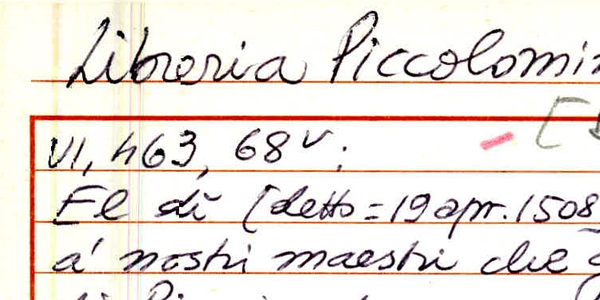 Libreria Piccolomin
VI, 463, 68v;
El dì [detto = 19 apr. 1508
a' nostri maestri che